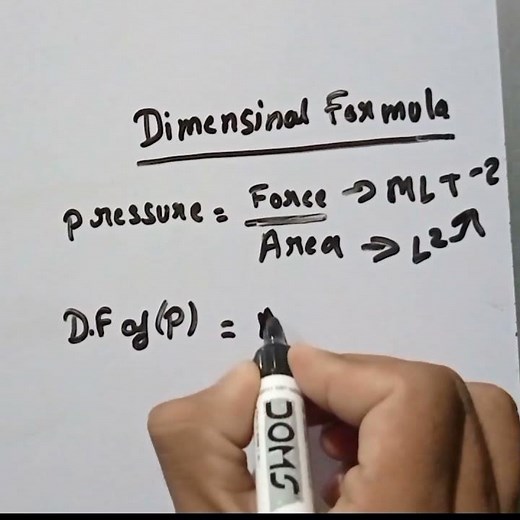 Dimensinal Formula
pressure = Force → MLT-2
Area → L2
D.F of (P) =
DOMS